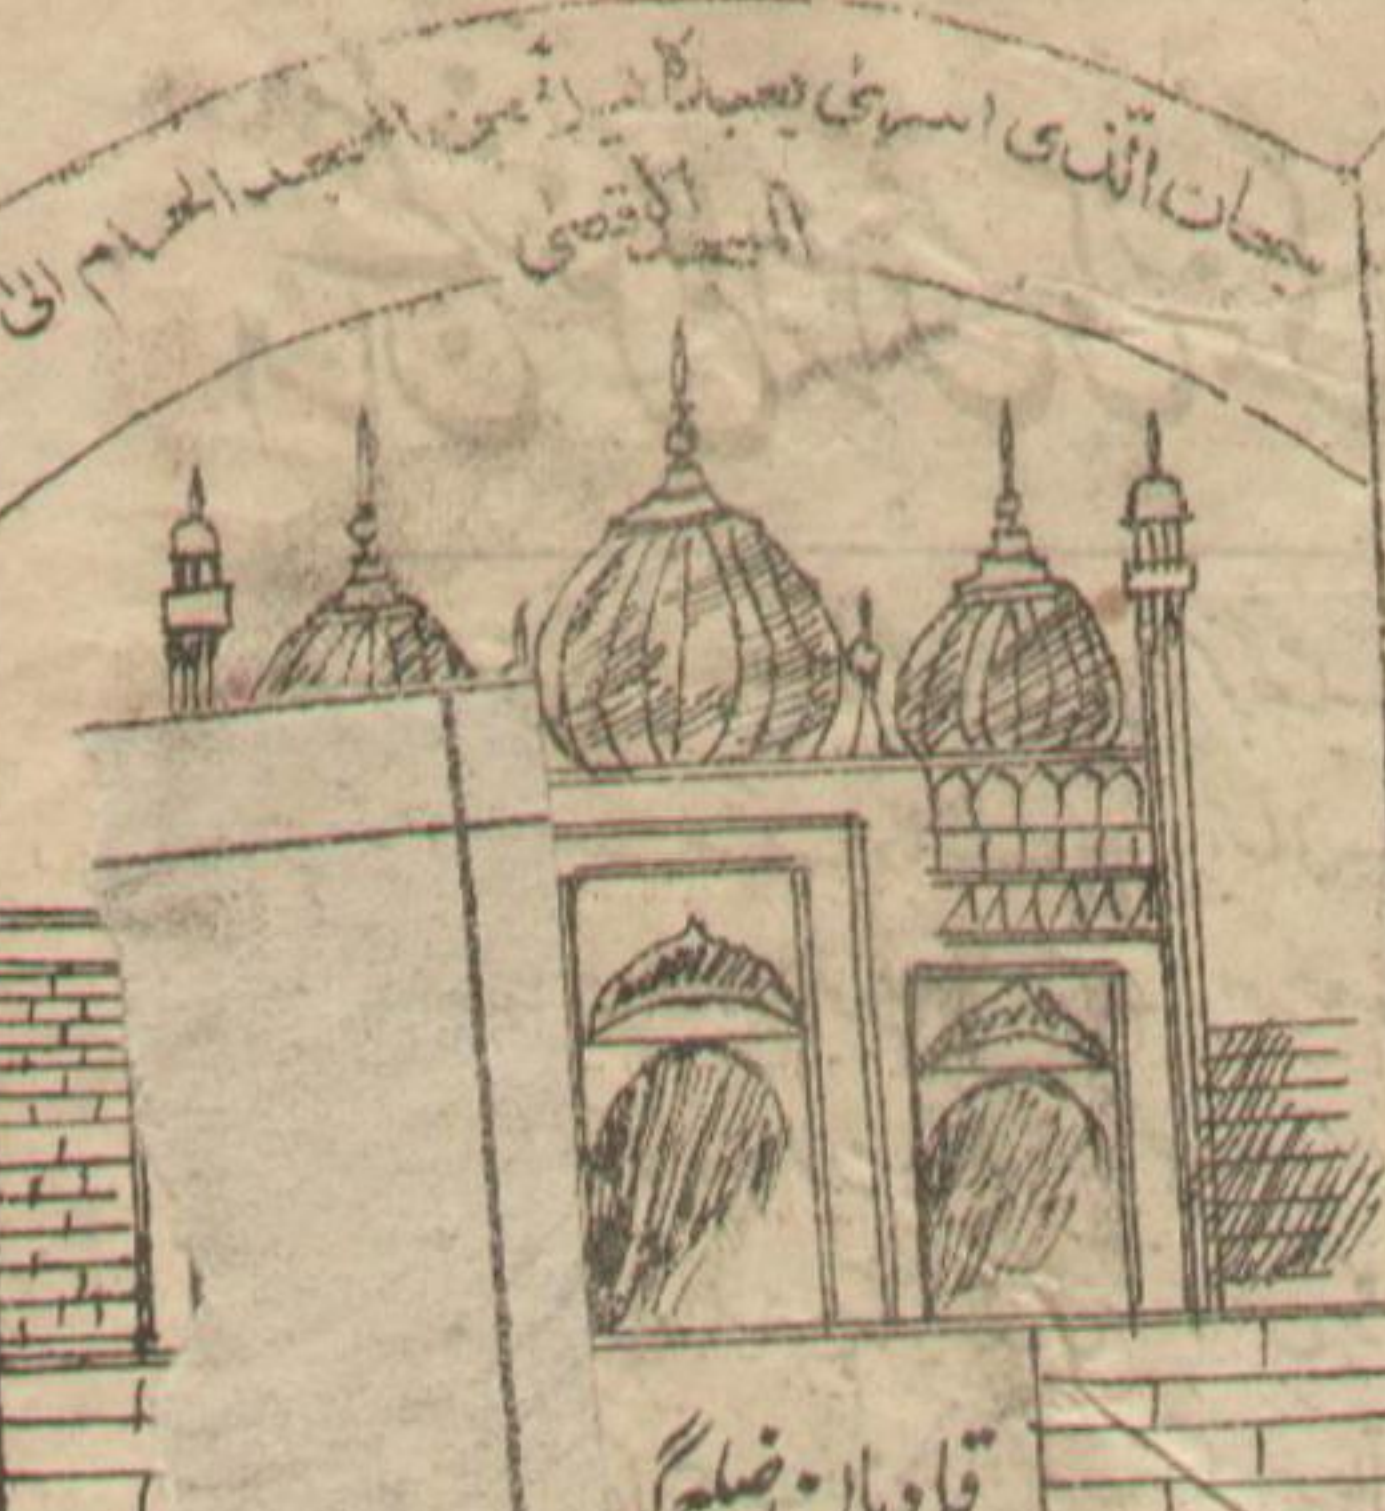 سبحان الّذی اسریٰ بعبدہٖ لیلاً من المسجد الحرام الیٰ
المسجد الاقصیٰ
قادیان ضلع گ